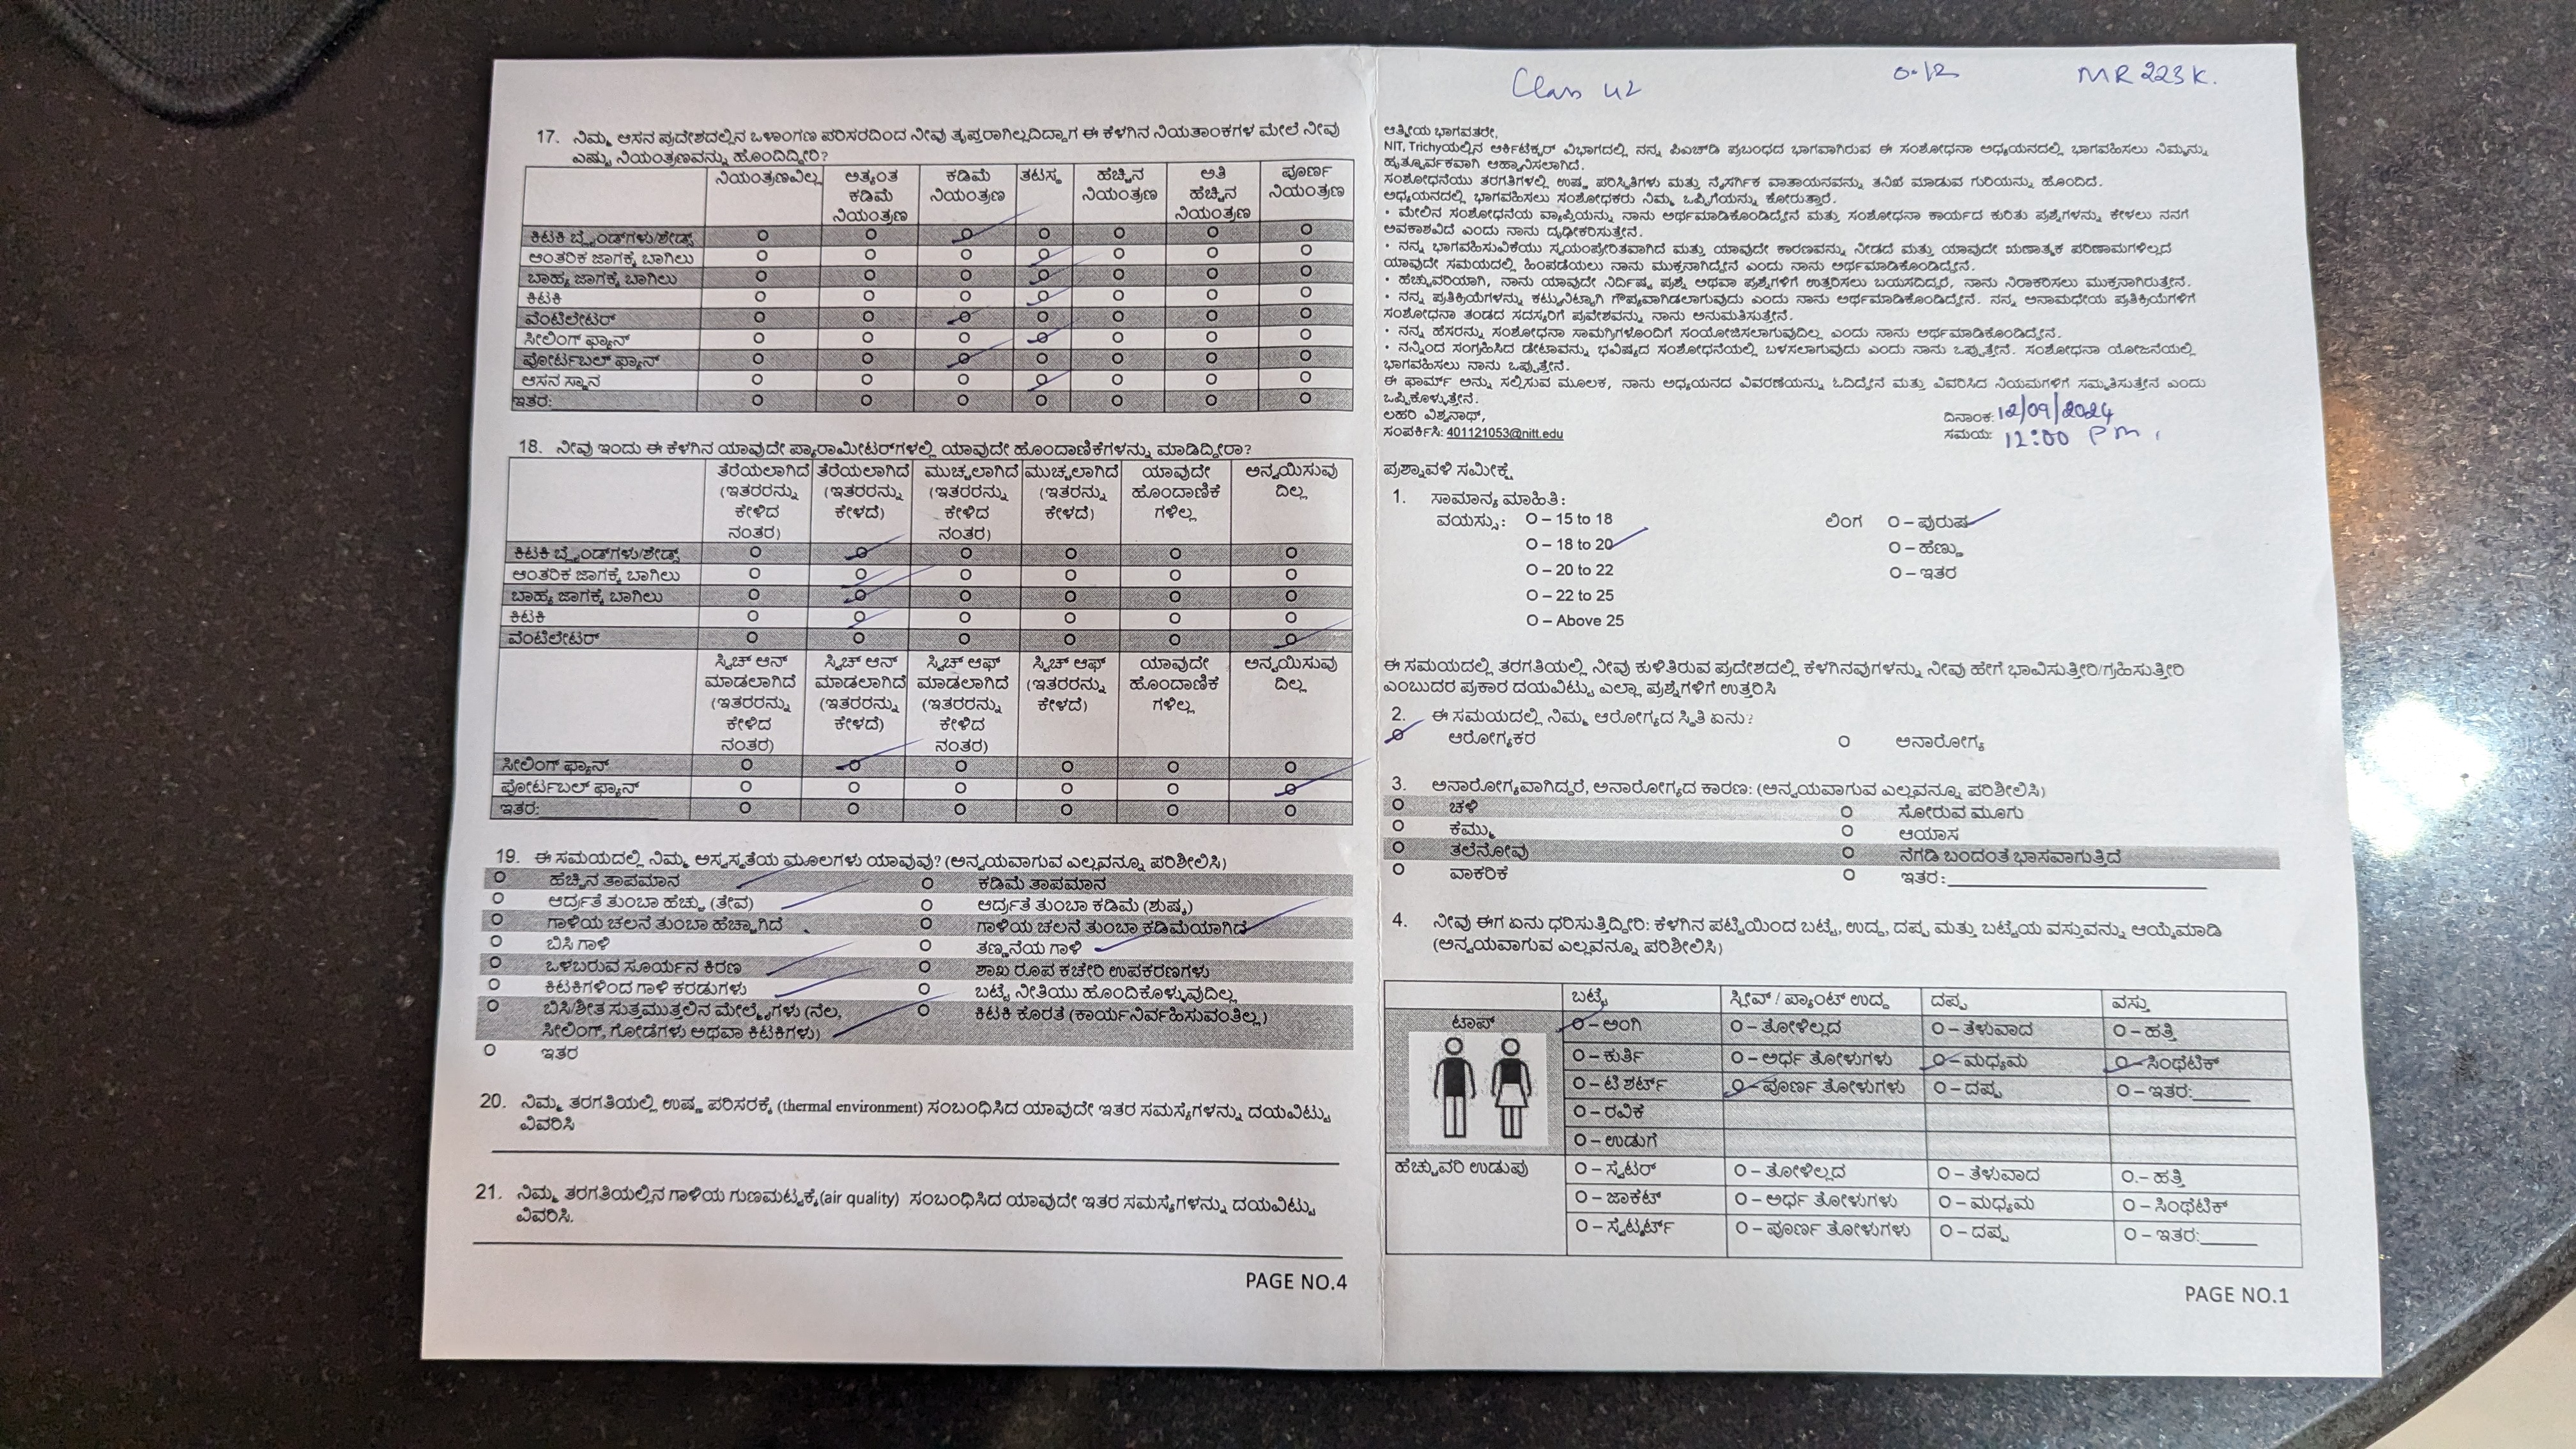 17. ನಿಮ್ಮ ಆಸನ ಪ್ರದೇಶದಲ್ಲಿನ ಒಳಾಂಗಣ ಪರಿಸರದಿಂದ ನೀವು ತೃಪ್ತರಾಗಿಲ್ಲದಿದ್ದಾಗ ಈ ಕೆಳಗಿನ ನಿಯತಾಂಕಗಳ ಮೇಲೆ ನೀವು
ಎಷ್ಟು ನಿಯಂತ್ರಣವನ್ನು ಹೊಂದಿದ್ದೀರಿ?
ನಿಯಂತ್ರಣವಿಲ್ಲ ಅತ್ಯಂತ ಕಡಿಮೆ ನಿಯಂತ್ರಣ ಕಡಿಮೆ ನಿಯಂತ್ರಣ ತಟಸ್ಥ ಹೆಚ್ಚಿನ ನಿಯಂತ್ರಣ ಅತಿ ಹೆಚ್ಚಿನ ನಿಯಂತ್ರಣ ಪೂರ್ಣ ನಿಯಂತ್ರಣ
ಕಿಟಕಿ ಬ್ಲೈಂಡ್‌ಗಳು/ಶೇಡ್ಸ್
ಆಂತರಿಕ ಜಾಗಕ್ಕೆ ಬಾಗಿಲು
ಬಾಹ್ಯ ಜಾಗಕ್ಕೆ ಬಾಗಿಲು
ಕಿಟಕಿ
ವೆಂಟಿಲೇಟರ್
ಸೀಲಿಂಗ್ ಫ್ಯಾನ್
ಪೋರ್ಟಬಲ್ ಫ್ಯಾನ್
ಆಸನ ಸ್ಥಾನ
ಇತರ:
18. ನೀವು ಇಂದು ಈ ಕೆಳಗಿನ ಯಾವುದೇ ಪ್ಯಾರಾಮೀಟರ್‌ಗಳಲ್ಲಿ ಯಾವುದೇ ಹೊಂದಾಣಿಕೆಗಳನ್ನು ಮಾಡಿದ್ದೀರಾ?
ತೆರೆಯಲಾಗಿದೆ (ಇತರರನ್ನು ಕೇಳಿದ ನಂತರ) ತೆರೆಯಲಾಗಿದೆ (ಇತರರನ್ನು ಕೇಳದೆ) ಮುಚ್ಚಲಾಗಿದೆ (ಇತರರನ್ನು ಕೇಳಿದ ನಂತರ) ಮುಚ್ಚಲಾಗಿದೆ (ಇತರರನ್ನು ಕೇಳದೆ) ಯಾವುದೇ ಹೊಂದಾಣಿಕೆ ಗಳಿಲ್ಲ ಅನ್ವಯಿಸುವು ದಿಲ್ಲ
ಕಿಟಕಿ ಬ್ಲೈಂಡ್‌ಗಳು/ಶೇಡ್ಸ್
ಆಂತರಿಕ ಜಾಗಕ್ಕೆ ಬಾಗಿಲು
ಬಾಹ್ಯ ಜಾಗಕ್ಕೆ ಬಾಗಿಲು
ಕಿಟಕಿ
ವೆಂಟಿಲೇಟರ್
ಸ್ವಿಚ್ ಆನ್ ಮಾಡಲಾಗಿದೆ (ಇತರರನ್ನು ಕೇಳಿದ ನಂತರ) ಸ್ವಿಚ್ ಆನ್ ಮಾಡಲಾಗಿದೆ (ಇತರರನ್ನು ಕೇಳದೆ) ಸ್ವಿಚ್ ಆಫ್ ಮಾಡಲಾಗಿದೆ (ಇತರರನ್ನು ಕೇಳಿದ ನಂತರ) ಸ್ವಿಚ್ ಆಫ್ (ಇತರರನ್ನು ಕೇಳದೆ) ಯಾವುದೇ ಹೊಂದಾಣಿಕೆ ಗಳಿಲ್ಲ ಅನ್ವಯಿಸುವು ದಿಲ್ಲ
ಸೀಲಿಂಗ್ ಫ್ಯಾನ್
ಪೋರ್ಟಬಲ್ ಫ್ಯಾನ್
ಇತರ:
19. ಈ ಸಮಯದಲ್ಲಿ ನಿಮ್ಮ ಅಸ್ವಸ್ಥತೆಯ ಮೂಲಗಳು ಯಾವುವು? (ಅನ್ವಯವಾಗುವ ಎಲ್ಲವನ್ನೂ ಪರಿಶೀಲಿಸಿ)
ಹೆಚ್ಚಿನ ತಾಪಮಾನ ಕಡಿಮೆ ತಾಪಮಾನ
ಆರ್ದ್ರತೆ ತುಂಬಾ ಹೆಚ್ಚು (ತೇವ) ಆರ್ದ್ರತೆ ತುಂಬಾ ಕಡಿಮೆ (ಶುಷ್ಕ)
ಗಾಳಿಯ ಚಲನೆ ತುಂಬಾ ಹೆಚ್ಚಾಗಿದೆ ಗಾಳಿಯ ಚಲನೆ ತುಂಬಾ ಕಡಿಮೆಯಾಗಿದೆ
ಬಿಸಿ ಗಾಳಿ ತಣ್ಣನೆಯ ಗಾಳಿ
ಒಳಬರುವ ಸೂರ್ಯನ ಕಿರಣ ಶಾಖ ರೂಪ ಕಚೇರಿ ಉಪಕರಣಗಳು
ಕಿಟಕಿಗಳಿಂದ ಗಾಳಿ ಕರಡುಗಳು ಬಟ್ಟೆ ನೀತಿಯು ಹೊಂದಿಕೊಳ್ಳುವುದಿಲ್ಲ
ಬಿಸಿ/ಶೀತ ಸುತ್ತಮುತ್ತಲಿನ ಮೇಲ್ಮೈಗಳು (ನೆಲ, ಕಿಟಕಿ ಕೊರತೆ (ಕಾರ್ಯನಿರ್ವಹಿಸುವಂತಿಲ್ಲ)
ಸೀಲಿಂಗ್, ಗೋಡೆಗಳು ಅಥವಾ ಕಿಟಕಿಗಳು)
ಇತರ
20. ನಿಮ್ಮ ತರಗತಿಯಲ್ಲಿ ಉಷ್ಣ ಪರಿಸರಕ್ಕೆ (thermal environment) ಸಂಬಂಧಿಸಿದ ಯಾವುದೇ ಇತರ ಸಮಸ್ಯೆಗಳನ್ನು ದಯವಿಟ್ಟು
ವಿವರಿಸಿ
21. ನಿಮ್ಮ ತರಗತಿಯಲ್ಲಿನ ಗಾಳಿಯ ಗುಣಮಟ್ಟಕ್ಕೆ(air quality) ಸಂಬಂಧಿಸಿದ ಯಾವುದೇ ಇತರ ಸಮಸ್ಯೆಗಳನ್ನು ದಯವಿಟ್ಟು
ವಿವರಿಸಿ.
PAGE NO.4
Class U2 0.12 MR 223K.
ಆತ್ಮೀಯ ಭಾಗವತರೇ,
NIT, Trichyಯಲ್ಲಿನ ಆರ್ಕಿಟೆಕ್ಚರ್ ವಿಭಾಗದಲ್ಲಿ ನನ್ನ ಪಿಎಚ್‌ಡಿ ಪ್ರಬಂಧದ ಭಾಗವಾಗಿರುವ ಈ ಸಂಶೋಧನಾ ಅಧ್ಯಯನದಲ್ಲಿ ಭಾಗವಹಿಸಲು ನಿಮ್ಮನ್ನು
ಹೃತ್ಪೂರ್ವಕವಾಗಿ ಆಹ್ವಾನಿಸಲಾಗಿದೆ.
ಸಂಶೋಧನೆಯು ತರಗತಿಗಳಲ್ಲಿ ಉಷ್ಣ ಪರಿಸ್ಥಿತಿಗಳು ಮತ್ತು ನೈಸರ್ಗಿಕ ವಾತಾಯನವನ್ನು ತನಿಖೆ ಮಾಡುವ ಗುರಿಯನ್ನು ಹೊಂದಿದೆ.
ಅಧ್ಯಯನದಲ್ಲಿ ಭಾಗವಹಿಸಲು ಸಂಶೋಧಕರು ನಿಮ್ಮ ಒಪ್ಪಿಗೆಯನ್ನು ಕೋರುತ್ತಾರೆ.
• ಮೇಲಿನ ಸಂಶೋಧನೆಯ ವ್ಯಾಪ್ತಿಯನ್ನು ನಾನು ಅರ್ಥಮಾಡಿಕೊಂಡಿದ್ದೇನೆ ಮತ್ತು ಸಂಶೋಧನಾ ಕಾರ್ಯದ ಕುರಿತು ಪ್ರಶ್ನೆಗಳನ್ನು ಕೇಳಲು ನನಗೆ
ಅವಕಾಶವಿದೆ ಎಂದು ನಾನು ದೃಢೀಕರಿಸುತ್ತೇನೆ.
• ನನ್ನ ಭಾಗವಹಿಸುವಿಕೆಯು ಸ್ವಯಂಪ್ರೇರಿತವಾಗಿದೆ ಮತ್ತು ಯಾವುದೇ ಕಾರಣವನ್ನು ನೀಡದೆ ಮತ್ತು ಯಾವುದೇ ಋಣಾತ್ಮಕ ಪರಿಣಾಮಗಳಿಲ್ಲದೆ
ಯಾವುದೇ ಸಮಯದಲ್ಲಿ ಹಿಂಪಡೆಯಲು ನಾನು ಮುಕ್ತನಾಗಿದ್ದೇನೆ ಎಂದು ನಾನು ಅರ್ಥಮಾಡಿಕೊಂಡಿದ್ದೇನೆ.
• ಹೆಚ್ಚುವರಿಯಾಗಿ, ನಾನು ಯಾವುದೇ ನಿರ್ದಿಷ್ಟ ಪ್ರಶ್ನೆ ಅಥವಾ ಪ್ರಶ್ನೆಗಳಿಗೆ ಉತ್ತರಿಸಲು ಬಯಸದಿದ್ದರೆ, ನಾನು ನಿರಾಕರಿಸಲು ಮುಕ್ತನಾಗಿರುತ್ತೇನೆ.
• ನನ್ನ ಪ್ರತಿಕ್ರಿಯೆಗಳನ್ನು ಕಟ್ಟುನಿಟ್ಟಾಗಿ ಗೌಪ್ಯವಾಗಿಡಲಾಗುವುದು ಎಂದು ನಾನು ಅರ್ಥಮಾಡಿಕೊಂಡಿದ್ದೇನೆ. ನನ್ನ ಅನಾಮಧೇಯ ಪ್ರತಿಕ್ರಿಯೆಗಳಿಗೆ
ಸಂಶೋಧನಾ ತಂಡದ ಸದಸ್ಯರಿಗೆ ಪ್ರವೇಶವನ್ನು ನಾನು ಅನುಮತಿಸುತ್ತೇನೆ.
• ನನ್ನ ಹೆಸರನ್ನು ಸಂಶೋಧನಾ ಸಾಮಗ್ರಿಗಳೊಂದಿಗೆ ಸಂಯೋಜಿಸಲಾಗುವುದಿಲ್ಲ ಎಂದು ನಾನು ಅರ್ಥಮಾಡಿಕೊಂಡಿದ್ದೇನೆ.
• ನನ್ನಿಂದ ಸಂಗ್ರಹಿಸಿದ ಡೇಟಾವನ್ನು ಭವಿಷ್ಯದ ಸಂಶೋಧನೆಯಲ್ಲಿ ಬಳಸಲಾಗುವುದು ಎಂದು ನಾನು ಒಪ್ಪುತ್ತೇನೆ. ಸಂಶೋಧನಾ ಯೋಜನೆಯಲ್ಲಿ
ಭಾಗವಹಿಸಲು ನಾನು ಒಪ್ಪುತ್ತೇನೆ.
ಈ ಫಾರ್ಮ್ ಅನ್ನು ಸಲ್ಲಿಸುವ ಮೂಲಕ, ನಾನು ಅಧ್ಯಯನದ ವಿವರಣೆಯನ್ನು ಓದಿದ್ದೇನೆ ಮತ್ತು ವಿವರಿಸಿದ ನಿಯಮಗಳಿಗೆ ಸಮ್ಮತಿಸುತ್ತೇನೆ ಎಂದು
ಒಪ್ಪಿಕೊಳ್ಳುತ್ತೇನೆ.
ಲಹರಿ ವಿಶ್ವನಾಥ್, ದಿನಾಂಕ: 12/09/2024
ಸಂಪರ್ಕಿಸಿ: 401121053@nitt.edu ಸಮಯ: 12:00 Pm.
ಪ್ರಶ್ನಾವಳಿ ಸಮೀಕ್ಷೆ
1. ಸಾಮಾನ್ಯ ಮಾಹಿತಿ:
ವಯಸ್ಸು: O – 15 to 18 ಲಿಂಗ O – ಪುರುಷ
O – 18 to 20 O – ಹೆಣ್ಣು
O – 20 to 22 O – ಇತರ
O – 22 to 25
O – Above 25
ಈ ಸಮಯದಲ್ಲಿ ತರಗತಿಯಲ್ಲಿ ನೀವು ಕುಳಿತಿರುವ ಪ್ರದೇಶದಲ್ಲಿ ಕೆಳಗಿನವುಗಳನ್ನು ನೀವು ಹೇಗೆ ಭಾವಿಸುತ್ತೀರಿ/ಗ್ರಹಿಸುತ್ತೀರಿ
ಎಂಬುದರ ಪ್ರಕಾರ ದಯವಿಟ್ಟು ಎಲ್ಲಾ ಪ್ರಶ್ನೆಗಳಿಗೆ ಉತ್ತರಿಸಿ
2. ಈ ಸಮಯದಲ್ಲಿ ನಿಮ್ಮ ಆರೋಗ್ಯದ ಸ್ಥಿತಿ ಏನು?
O ಆರೋಗ್ಯಕರ O ಅನಾರೋಗ್ಯ
3. ಅನಾರೋಗ್ಯವಾಗಿದ್ದರೆ, ಅನಾರೋಗ್ಯದ ಕಾರಣ: (ಅನ್ವಯವಾಗುವ ಎಲ್ಲವನ್ನೂ ಪರಿಶೀಲಿಸಿ)
O ಚಳಿ O ಸೋರುವ ಮೂಗು
O ಕೆಮ್ಮು O ಆಯಾಸ
O ತಲೆನೋವು O ನೆಗಡಿ ಬಂದಂತೆ ಭಾಸವಾಗುತ್ತಿದೆ
O ವಾಕರಿಕೆ O ಇತರ:
4. ನೀವು ಈಗ ಏನು ಧರಿಸುತ್ತಿದ್ದೀರಿ: ಕೆಳಗಿನ ಪಟ್ಟಿಯಿಂದ ಬಟ್ಟೆ, ಉದ್ದ, ದಪ್ಪ ಮತ್ತು ಬಟ್ಟೆಯ ವಸ್ತುವನ್ನು ಆಯ್ಕೆಮಾಡಿ
(ಅನ್ವಯವಾಗುವ ಎಲ್ಲವನ್ನೂ ಪರಿಶೀಲಿಸಿ)
ಬಟ್ಟೆ ಸ್ಲೀವ್ / ಪ್ಯಾಂಟ್ ಉದ್ದ ದಪ್ಪ ವಸ್ತು
ಟಾಪ್ O – ಅಂಗಿ O – ತೋಳಿಲ್ಲದ O – ತೆಳುವಾದ O – ಹತ್ತಿ
O – ಕುರ್ತಿ O – ಅರ್ಧ ತೋಳುಗಳು O – ಮಧ್ಯಮ O – ಸಿಂಥೆಟಿಕ್
O – ಟಿ ಶರ್ಟ್ O – ಪೂರ್ಣ ತೋಳುಗಳು O – ದಪ್ಪ O – ಇತರ:
O – ರವಿಕೆ
O – ಉಡುಗೆ
ಹೆಚ್ಚುವರಿ ಉಡುಪು O – ಸ್ವೆಟರ್ O – ತೋಳಿಲ್ಲದ O – ತೆಳುವಾದ O.– ಹತ್ತಿ
O – ಜಾಕೆಟ್ O – ಅರ್ಧ ತೋಳುಗಳು O – ಮಧ್ಯಮ O – ಸಿಂಥೆಟಿಕ್
O – ಸ್ವೆಟ್ಶರ್ಟ್ O – ಪೂರ್ಣ ತೋಳುಗಳು O – ದಪ್ಪ O – ಇತರ:
PAGE NO.1